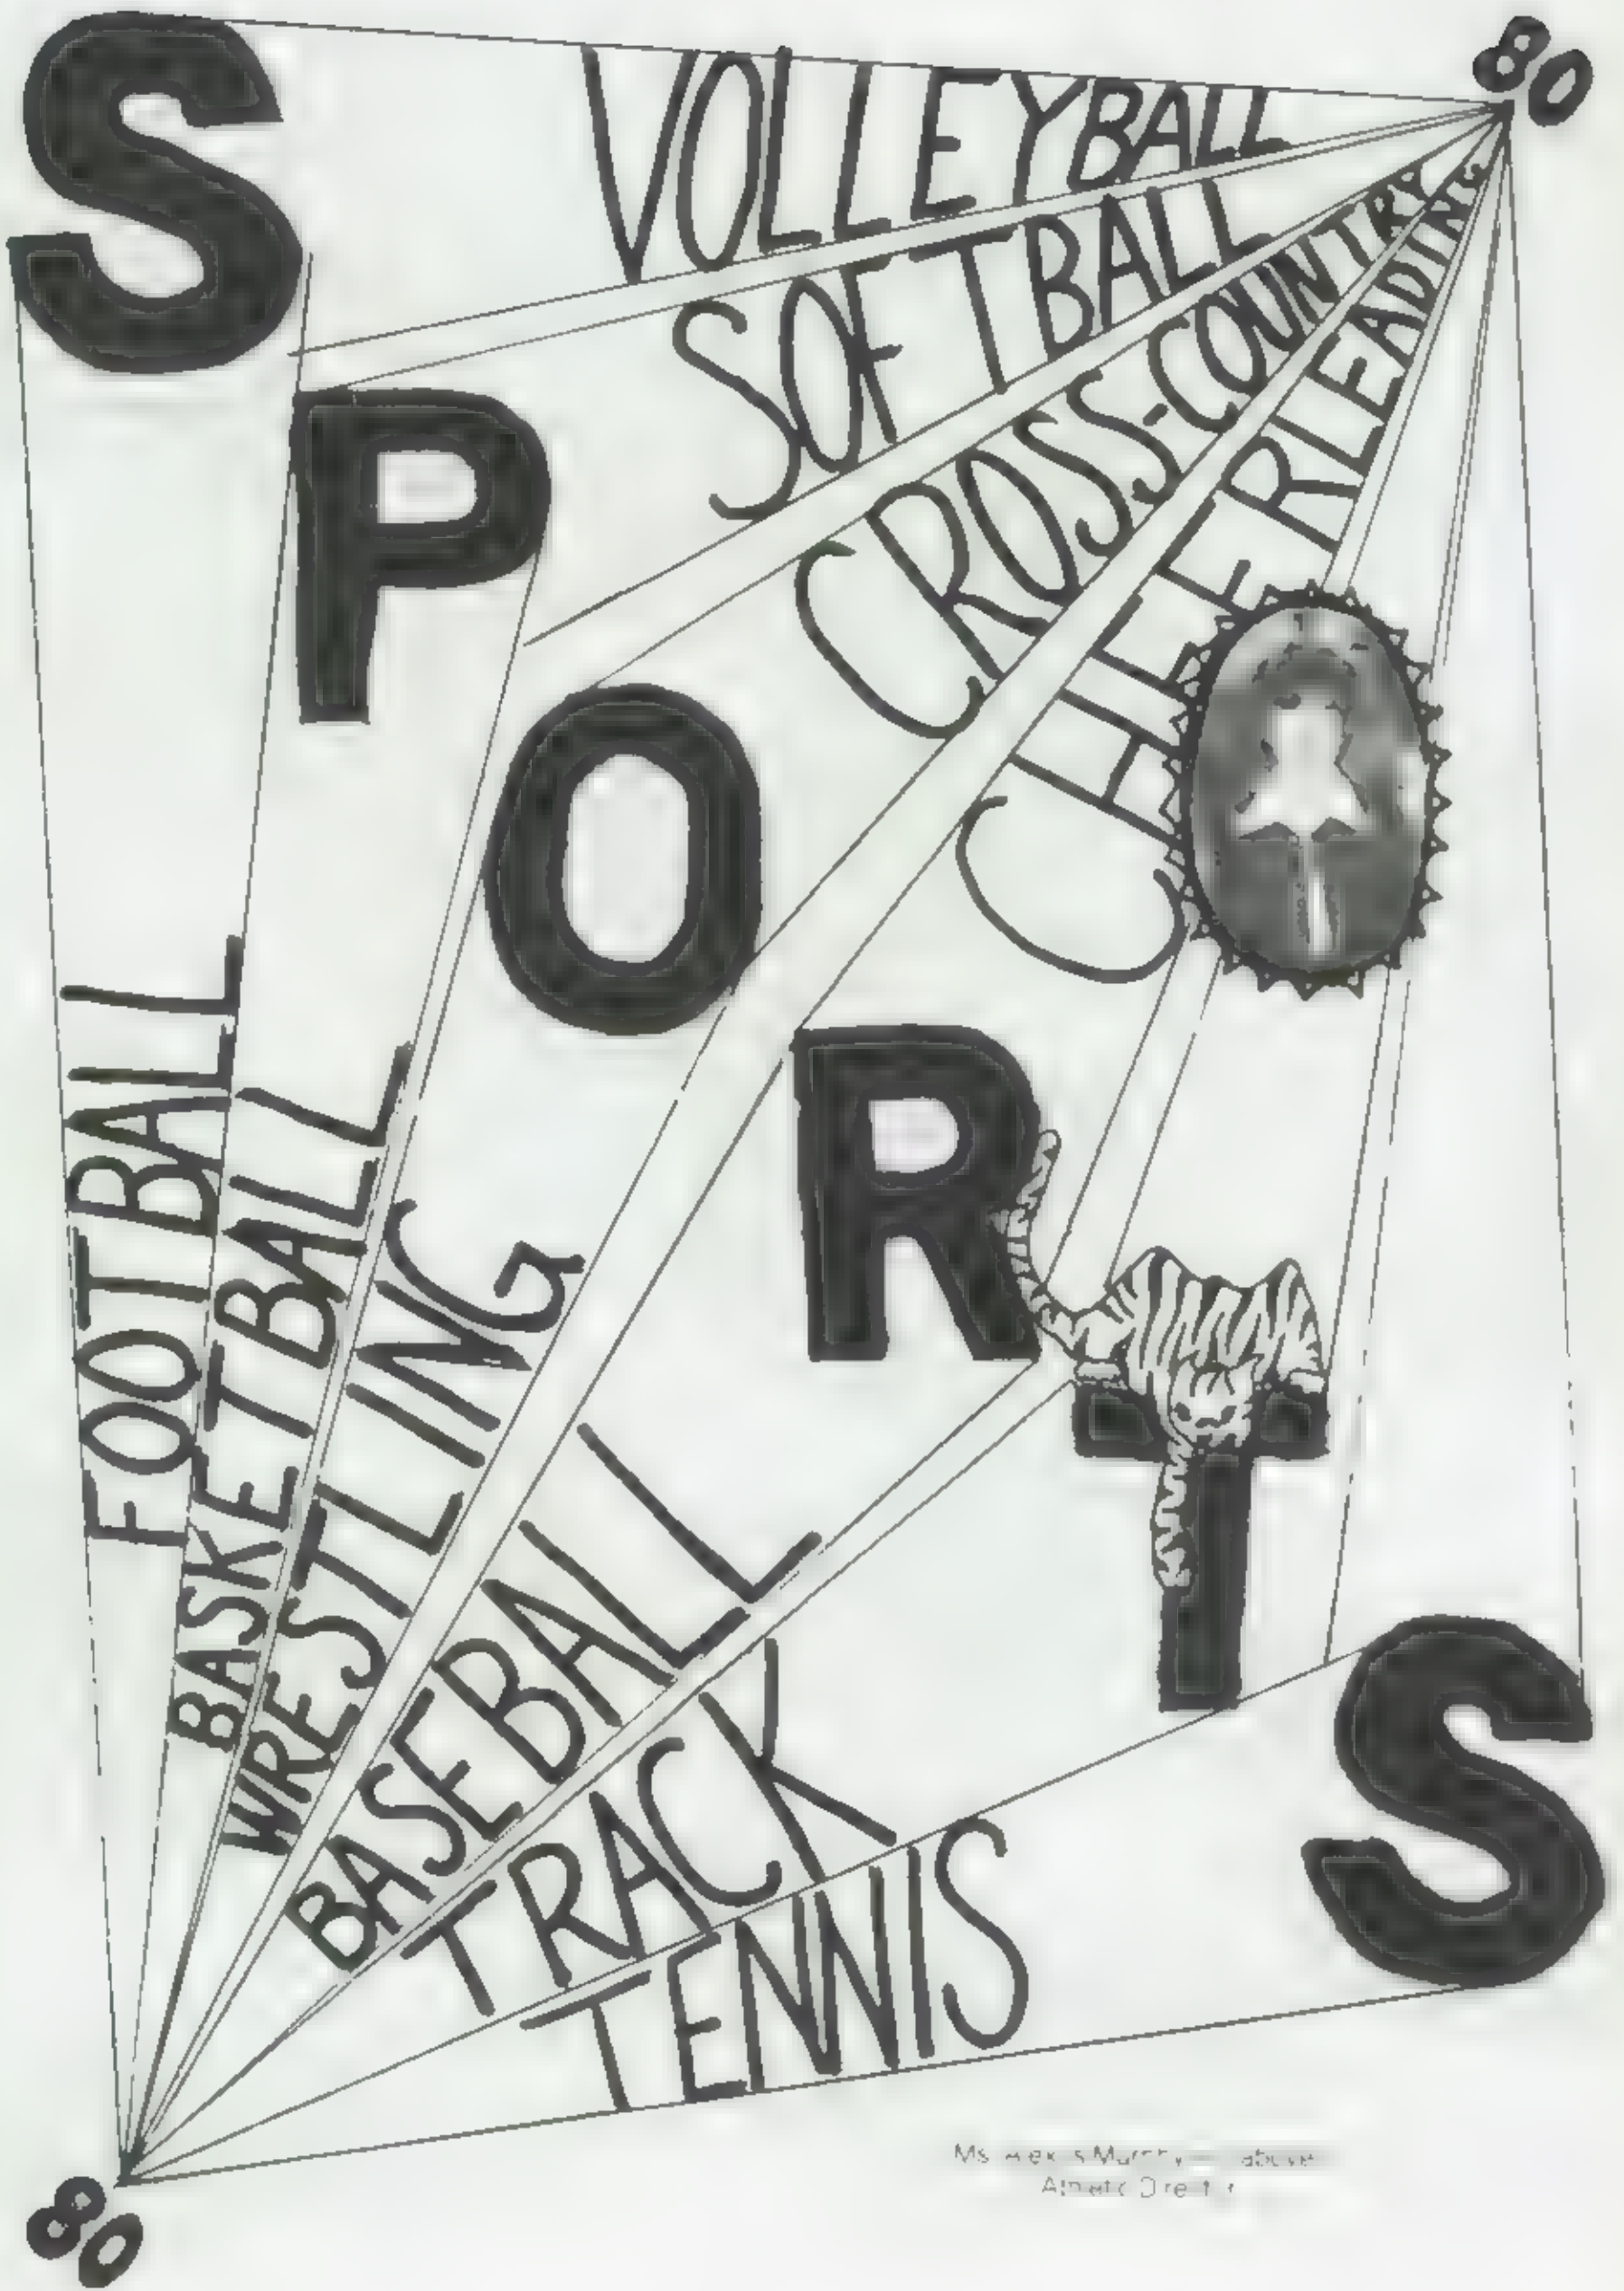 SPORTS
80
VOLLEYBALL
SOFTBALL
CROSS-COUNTRY
CHEERLEADING
FOOTBALL
BASKETBALL
WRESTLING
BASEBALL
TRACK
TENNIS
80
Ms. Alexis Murphy above
Athletic Director